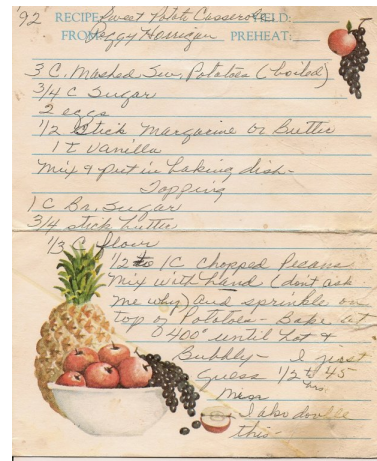 '92 RECIPE: Sweet Potato Casserole YIELD:
FROM: Peggy Horrigan PREHEAT:
3 C. Mashed Sw. Potatoes (boiled)
3/4 C Sugar
2 eggs
1/2 Stick Margarine or Butter
1 t Vanilla
Mix & put in baking dish-
Topping
1 C Br. Sugar
3/4 stick butter
1/3 C flour
1/2 to 1C Chopped Pecans
Mix with hand (don't ask
me why) and sprinkle on
top of Potatoes - Bake at
400° until hot &
Bubbly - I just
guess 1/2 to 45
hrs.
Min
I also double
this -